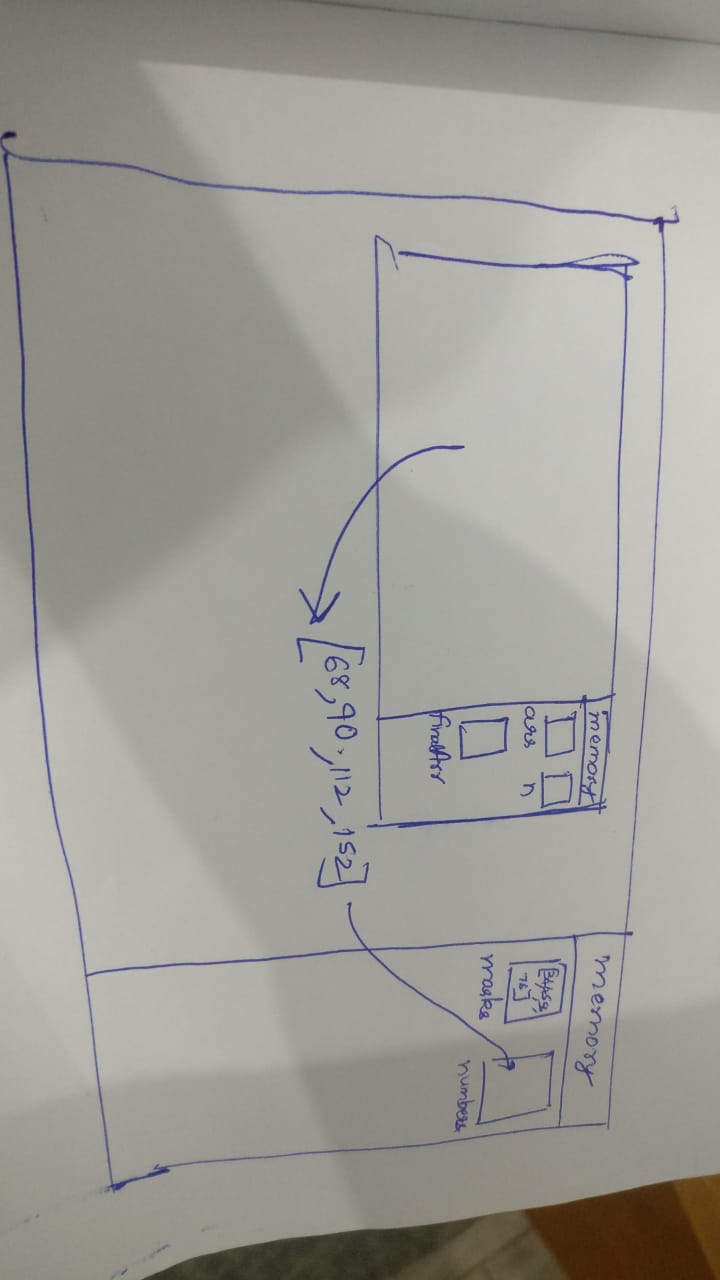 memory
arr
n
finalArr
[68, 90, 112, 152]
memory
marks
numbers